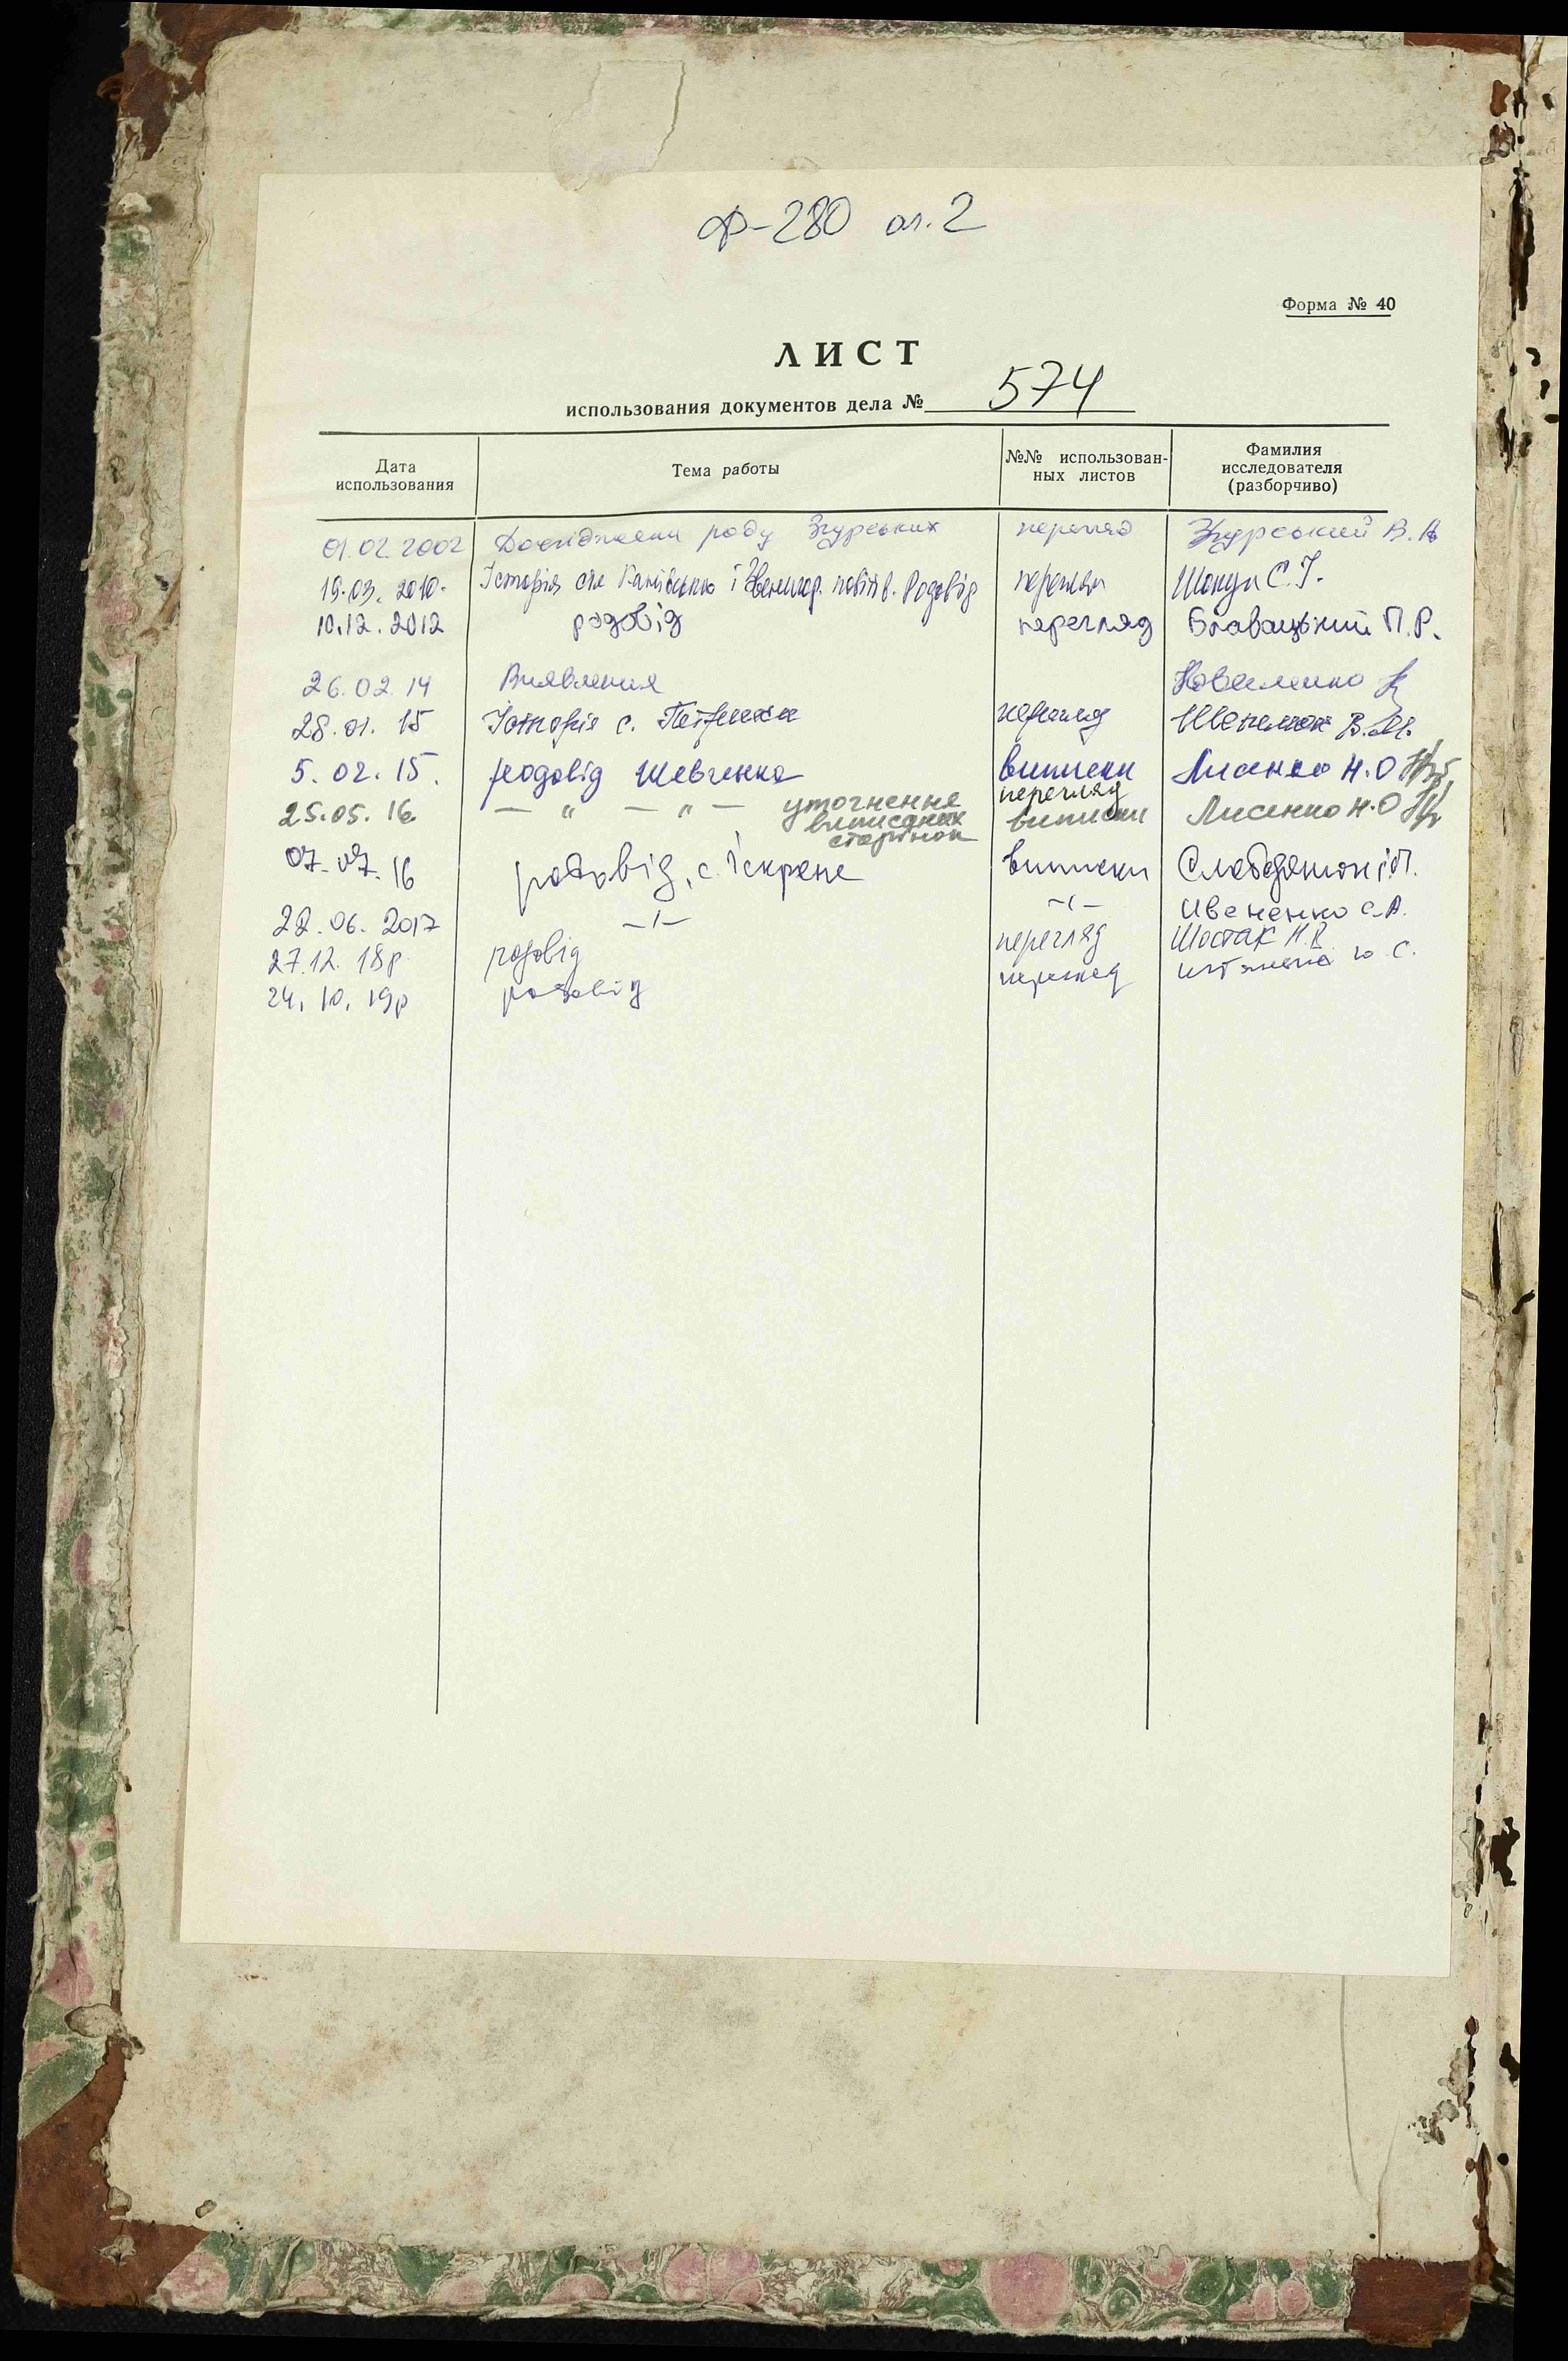 Ф-280 оп. 2
Форма № 40
ЛИСТ
использования документов дела № 574
Дата использования
Тема работы
№№ использован-ных листов
Фамилия исследователя (разборчиво)
01.02.2002 Дослідження роду Згурських перегляд Згурський В.А
19.03.2010. Історія сіл Канівського і Звенигор. повітів. Родовід перегляд С.І.
10.12.2012 родовід перегляд Блавацький П.Р.
26.02.14 Виявлення Коваленко
28.01.15 Історія с. перегляд В.М.
5.02.15. родовід Шевченка виписки Лисенко Н.О
25.05.16. — " — " — уточнення виписаних сторінок перегляд виписки Лисенко Н.О
07.07.16 родовід, с. Іскрене виписки
22.06.2017 -/- -/- с.А.
27.12.18р. родовід перегляд Шостак Н.В.
24.10.19р родовід перегляд Ю.С.